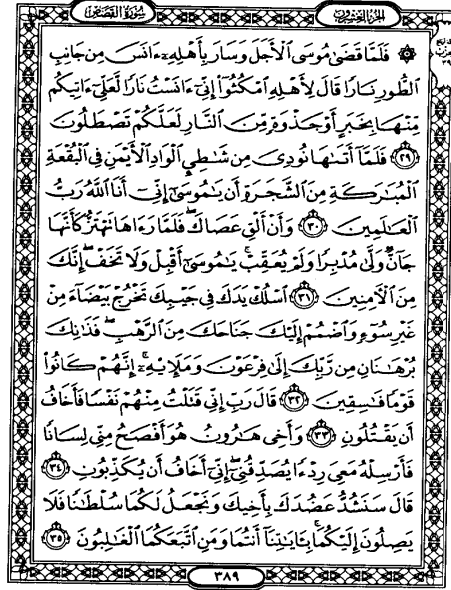 سُورَةُ القَصَصِ الجُزْءُ العِشْرُونَ
۞ فَلَمَّا قَضَىٰ مُوسَى ٱلْأَجَلَ وَسَارَ بِأَهْلِهِۦٓ ءَانَسَ مِن جَانِبِ
ٱلطُّورِ نَارًا قَالَ لِأَهْلِهِ ٱمْكُثُوٓا۟ إِنِّىٓ ءَانَسْتُ نَارًا لَّعَلِّىٓ ءَاتِيكُم
مِّنْهَا بِخَبَرٍ أَوْ جَذْوَةٍ مِّنَ ٱلنَّارِ لَعَلَّكُمْ تَصْطَلُونَ
٢٩ فَلَمَّآ أَتَىٰهَا نُودِىَ مِن شَٰطِئِ ٱلْوَادِ ٱلْأَيْمَنِ فِى ٱلْبُقْعَةِ
ٱلْمُبَٰرَكَةِ مِنَ ٱلشَّجَرَةِ أَن يَٰمُوسَىٰٓ إِنِّىٓ أَنَا ٱللَّهُ رَبُّ
ٱلْعَٰلَمِينَ ٣٠ وَأَنْ أَلْقِ عَصَاكَ ۖ فَلَمَّا رَءَاهَا تَهْتَزُّ كَأَنَّهَا
جَآنٌّ وَلَّىٰ مُدْبِرًا وَلَمْ يُعَقِّبْ ۚ يَٰمُوسَىٰٓ أَقْبِلْ وَلَا تَخَفْ ۖ إِنَّكَ
مِنَ ٱلْءَامِنِينَ ٣١ ٱسْلُكْ يَدَكَ فِى جَيْبِكَ تَخْرُجْ بَيْضَآءَ مِنْ
غَيْرِ سُوٓءٍ وَٱضْمُمْ إِلَيْكَ جَنَاحَكَ مِنَ ٱلرَّهْبِ ۖ فَذَٰنِكَ
بُرْهَٰنَانِ مِن رَّبِّكَ إِلَىٰ فِرْعَوْنَ وَمَلَإِي۟هِۦٓ ۚ إِنَّهُمْ كَانُوا۟
قَوْمًا فَٰسِقِينَ ٣٢ قَالَ رَبِّ إِنِّى قَتَلْتُ مِنْهُمْ نَفْسًا فَأَخَافُ
أَن يَقْتُلُونِ ٣٣ وَأَخِى هَٰرُونُ هُوَ أَفْصَحُ مِنِّى لِسَانًا
فَأَرْسِلْهُ مَعِىَ رِدْءًا يُصَدِّقُنِىٓ ۖ إِنِّىٓ أَخَافُ أَن يُكَذِّبُونِ ٣٤
قَالَ سَنَشُدُّ عَضُدَكَ بِأَخِيكَ وَنَجْعَلُ لَكُمَا سُلْطَٰنًا فَلَا
يَصِلُونَ إِلَيْكُمَا ۚ بِـَٔايَٰتِنَآ أَنتُمَا وَمَنِ ٱتَّبَعَكُمَا ٱلْغَٰلِبُونَ ٣٥
٣٨٩